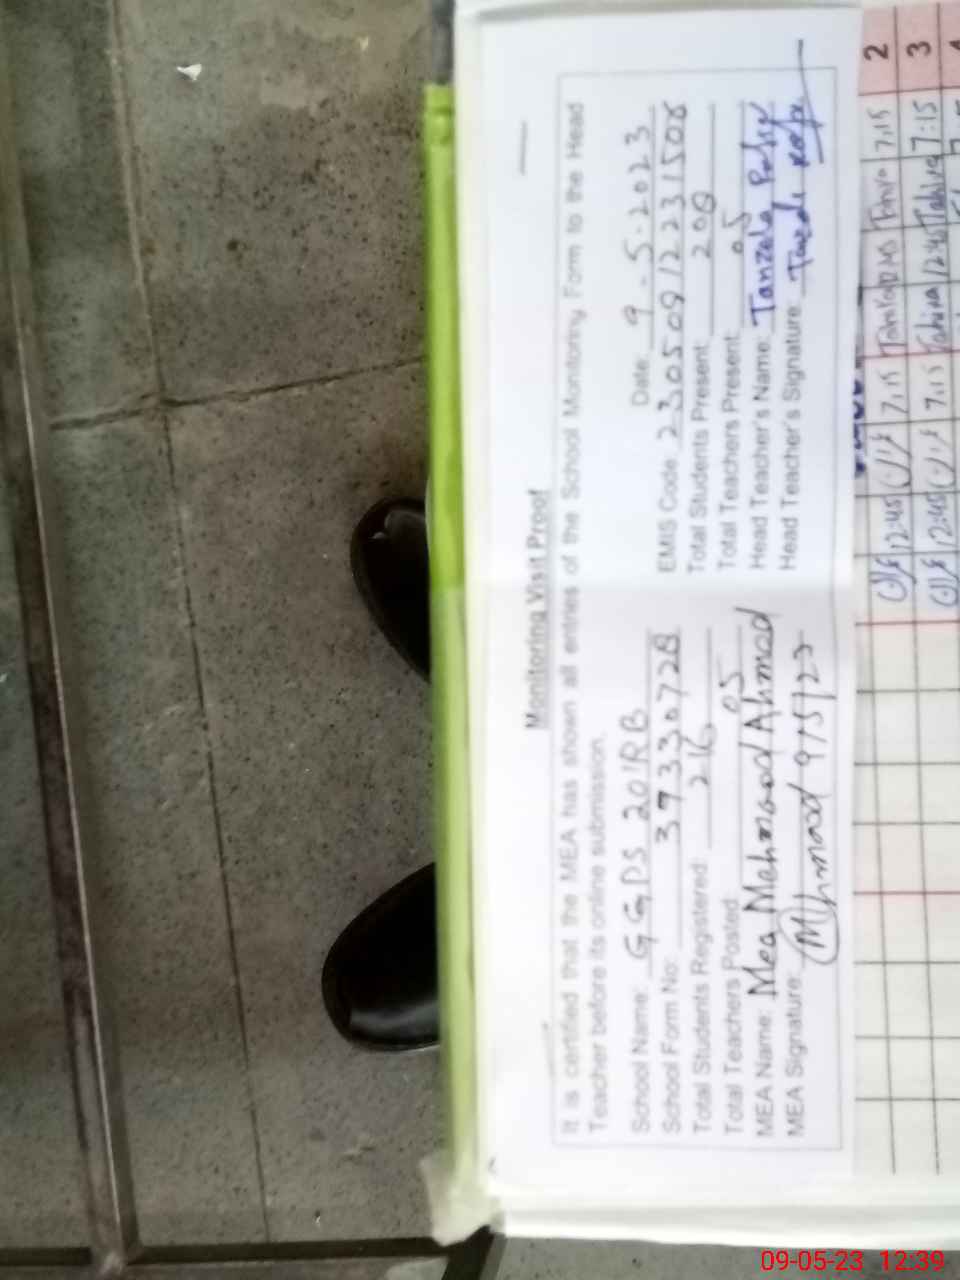 Monitoring Visit Proof
It is certified that the MEA has shown all entries of the School Monitoring Form to the Head
Teacher before its online submission.
School Name: GGPS 201RB Date: 9-5-2023
School Form No: 39330728 EMIS Code
Total Students Registered: 216 Total Students Present
Total Teachers Posted 05 Total Teachers Present 05
MEA Name: Mea Mahmood Ahmad Head Teacher's Name: Tanzela
MEA Signature: 9/5/23 Head Teacher's Signature:
12:45 7:15 7:15 2
12:45 7:15 Tahira 12:45 Tahira 7:15 3
09-05-23 12:39